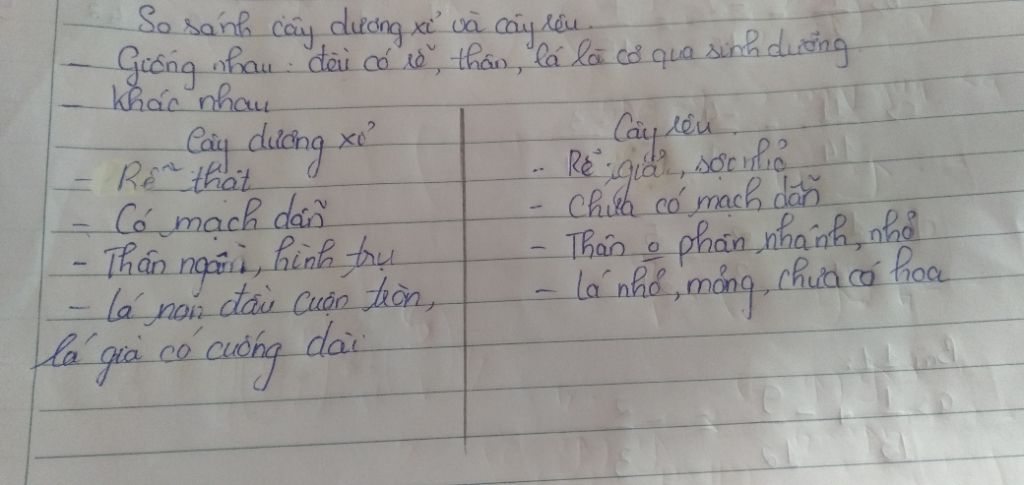 So sánh cây dương xỉ và cây rêu.
- Giống nhau: đều có rễ, thân, lá là cơ qua sinh dưỡng
- Khác nhau
Cây dương xỉ
- Rễ thật
- Có mạch dẫn
- Thân ngầm, hình trụ
- lá non đầu cuộn tròn,
lá già có cuống dài
Cây rêu
- Rễ giả, sợi nhỏ
- Chưa có mạch dẫn
- Thân o phân nhánh, nhỏ
- lá nhỏ, mỏng, chưa có hoa